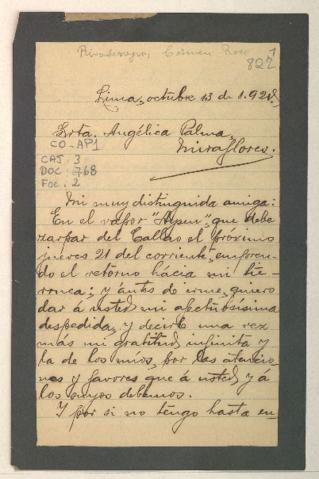 Rivadeneyra, Carmen Rosa 1
822
Lima, octubre 13 de 1.920.
Srta. Angélica Palma,
CO-AP1
Miraflores.
CAJ. 3
DOC. 768
FOL. 2
Mi muy distinguida amiga:
En el vapor "Aysen", que debe
zarpar del Callao el próximo
jueves 21 del corriente, empren-
do el retorno hacia mi tie-
rruca; y ántes de irme, quiero
dar á usted mi afectuosísima
despedida, y decirle una vez
más mi gratitud infinita y
la de los míos, por las atencio-
nes y favores que á usted y á
los suyos debemos.
Y por si no tengo hasta en-